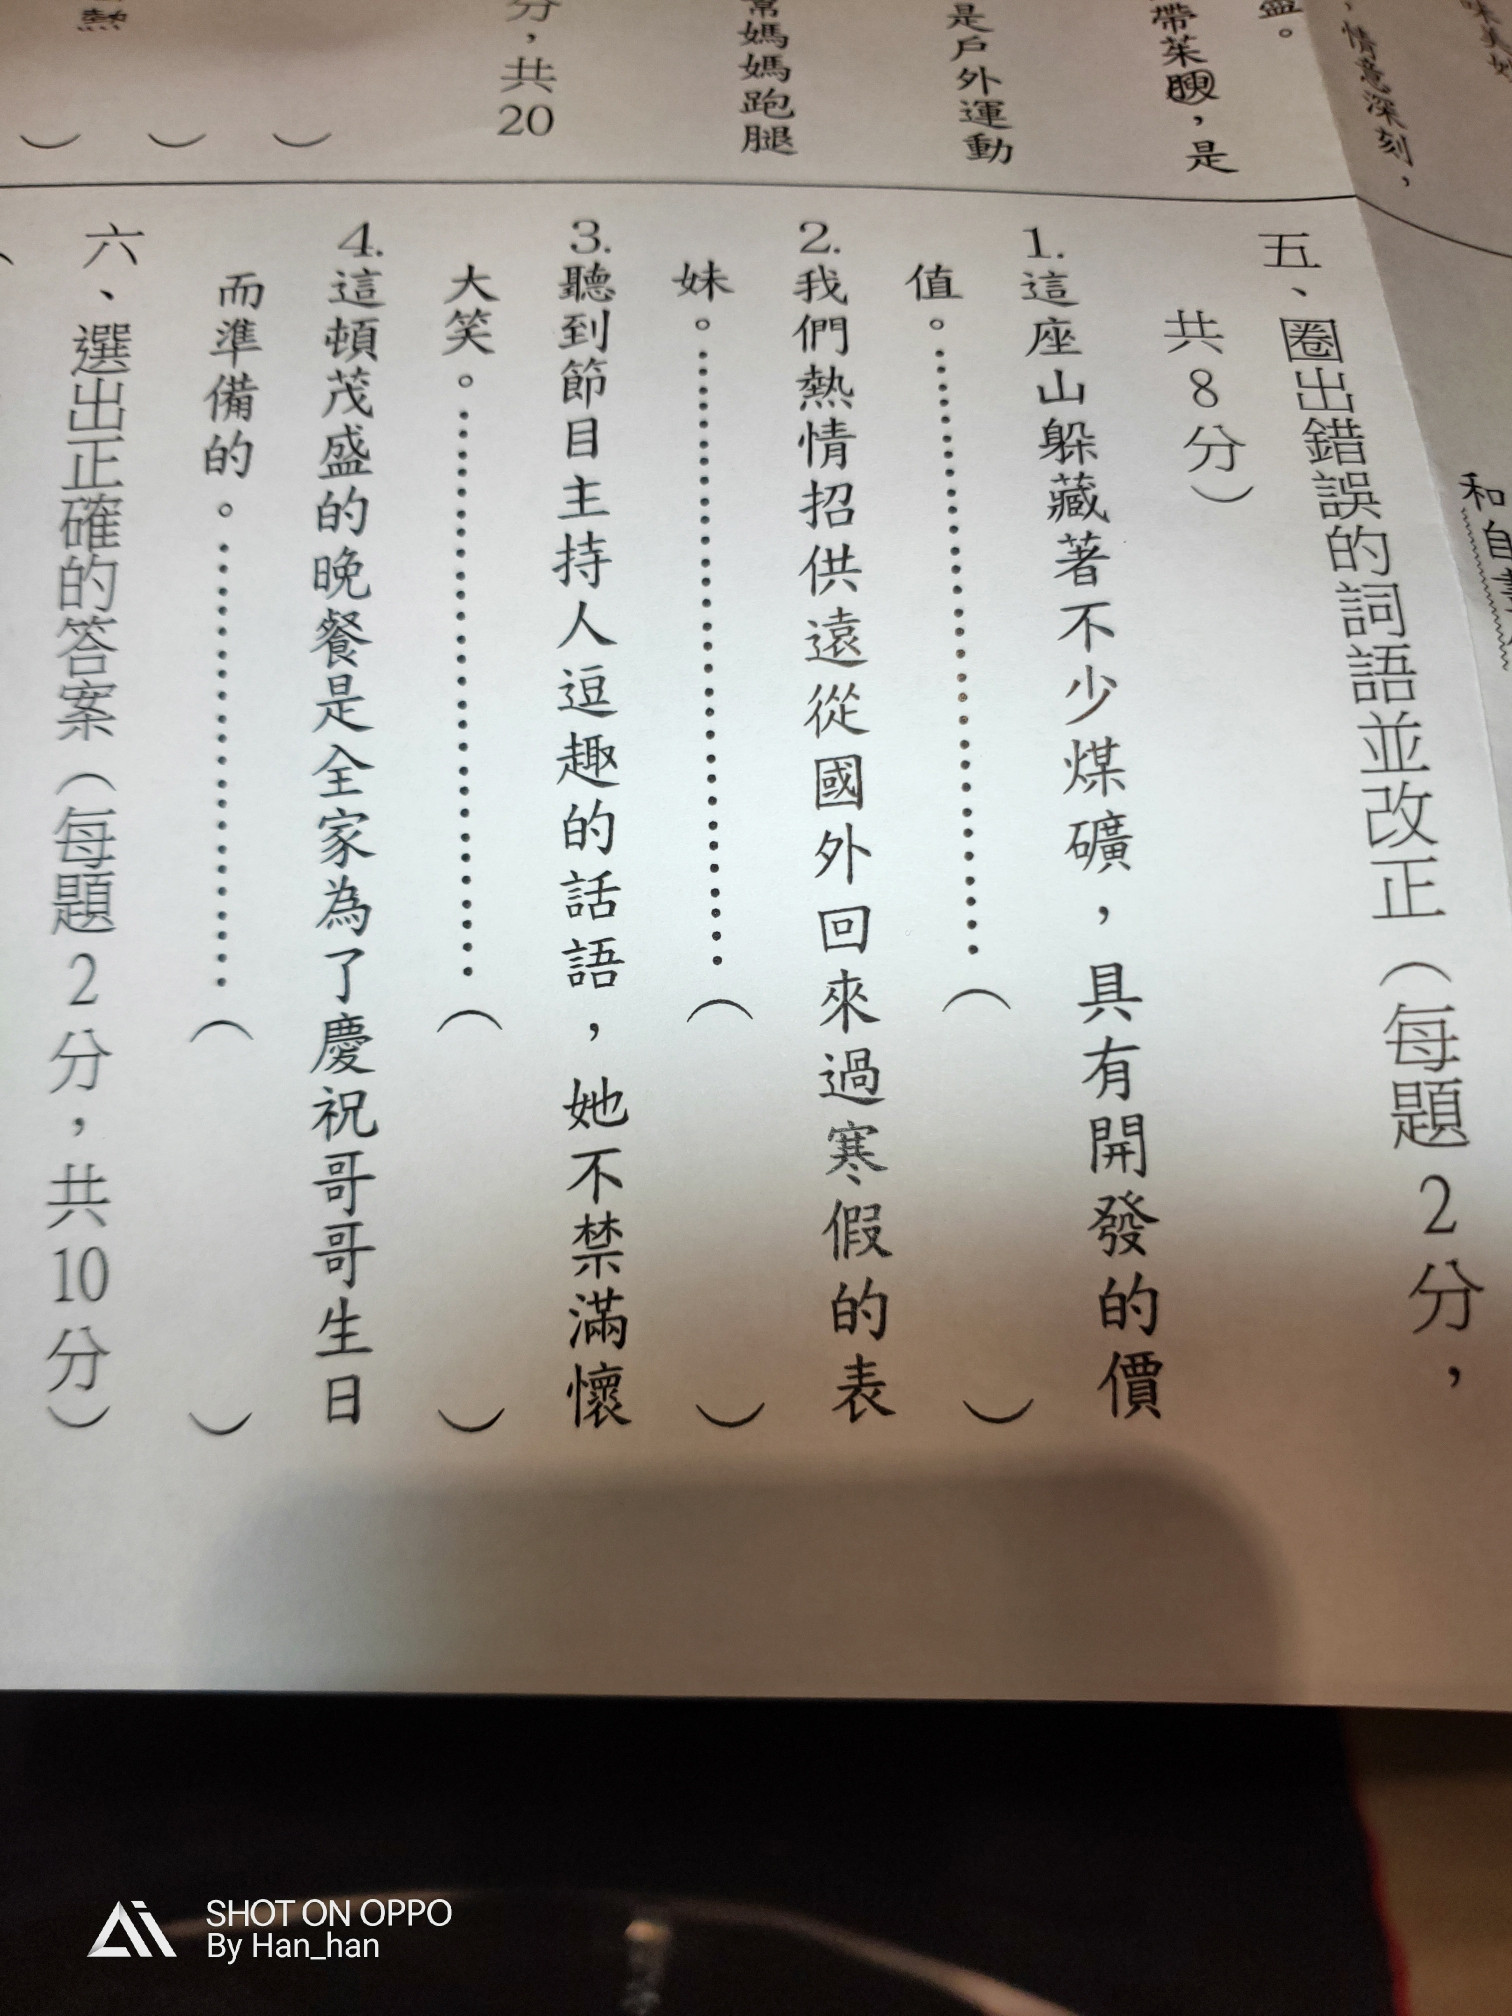 味美妙
，情意深刻，
盈。
帶茱萸，是
是戶外運動
常媽媽跑腿
分，共20
熱
）
）
）
和自
五、圈出錯誤的詞語並改正（每題2分，
共8分）
1.這座山躲藏著不少煤礦，具有開發的價
值。……………………（ ）
2.我們熱情招供遠從國外回來過寒假的表
妹。……………………（ ）
3.聽到節目主持人逗趣的話語，她不禁滿懷
大笑。……………………（ ）
4.這頓茂盛的晚餐是全家為了慶祝哥哥生日
而準備的。……………………（ ）
六、選出正確的答案（每題2分，共10分）
SHOT ON OPPO
By Han_han